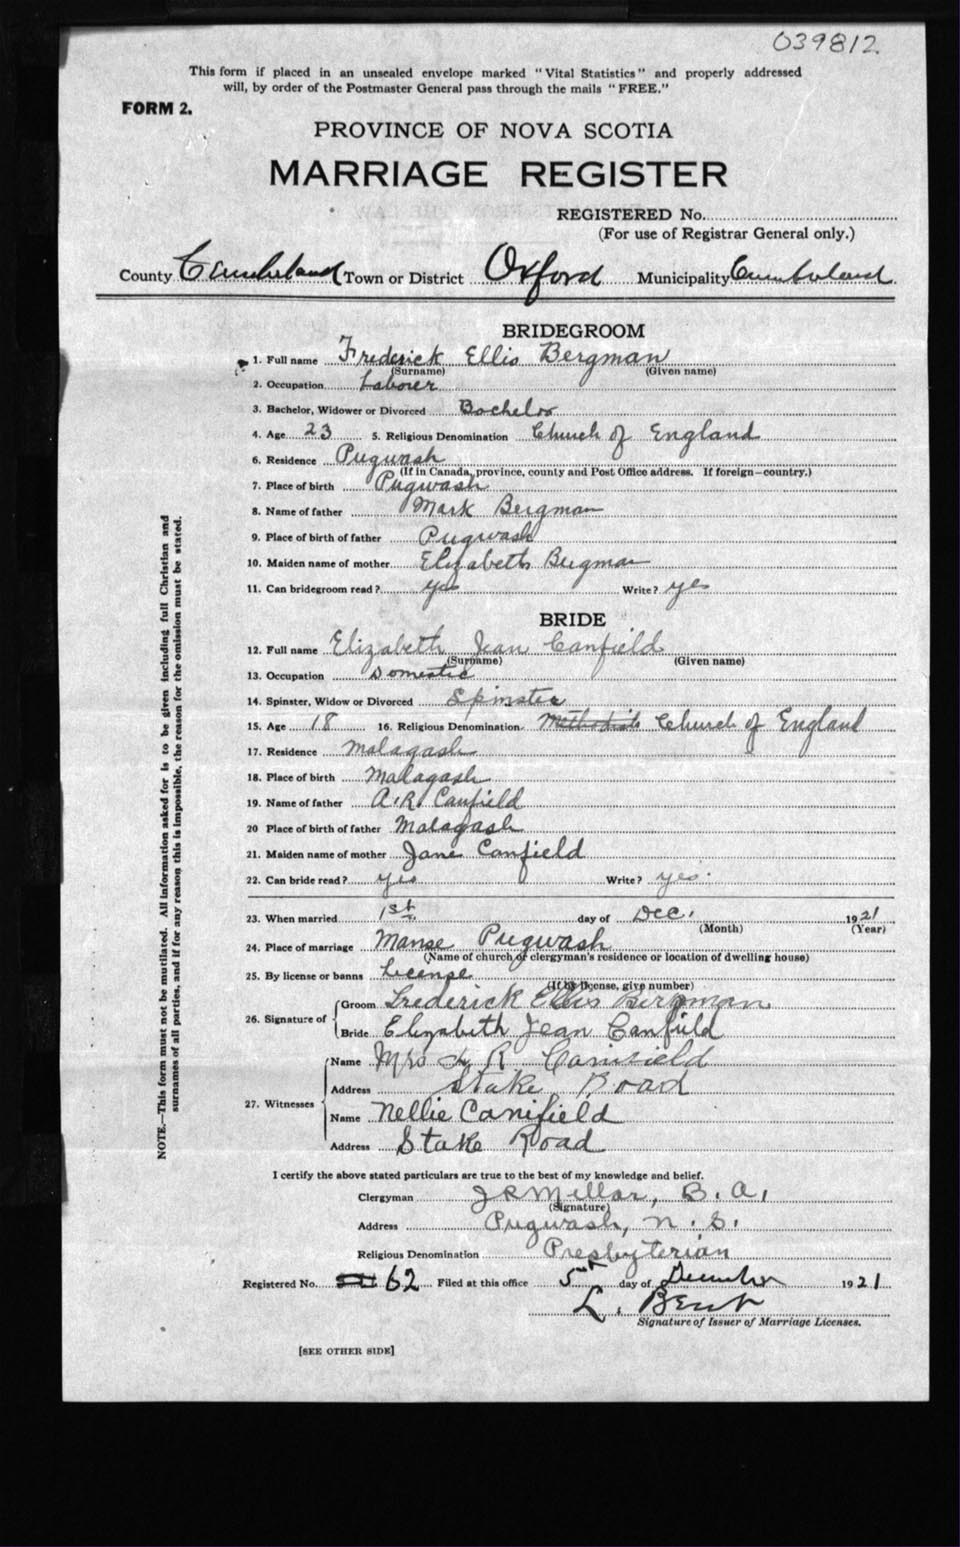 039812
This form if placed in an unsealed envelope marked "Vital Statistics" and properly addressed
will, by order of the Postmaster General pass through the mails "FREE."
FORM 2.
PROVINCE OF NOVA SCOTIA
MARRIAGE REGISTER
REGISTERED No.
(For use of Registrar General only.)
County Cumberland Town or District Oxford Municipality Cumberland
BRIDEGROOM
1. Full name Frederick Ellis Bergman
(Surname) (Given name)
2. Occupation Laborer
3. Bachelor, Widower or Divorced Bachelor
4. Age 23 5. Religious Denomination Church of England
6. Residence Pugwash
(If in Canada, province, county and Post Office address. If foreign—country.)
7. Place of birth Pugwash
8. Name of father Mark Bergman
9. Place of birth of father Pugwash
10. Maiden name of mother Elizabeth Bergman
11. Can bridegroom read? yes Write? yes
BRIDE
12. Full name Elizabeth Jean Canfield
(Surname) (Given name)
13. Occupation Domestic
14. Spinster, Widow or Divorced Spinster
15. Age 18 16. Religious Denomination Methodist Church of England
17. Residence Malagash
18. Place of birth Malagash
19. Name of father A. R. Canfield
20 Place of birth of father Malagash
21. Maiden name of mother Jane Canfield
22. Can bride read? yes Write? yes.
23. When married 1st day of Dec. 1921
(Month) (Year)
24. Place of marriage Manse Pugwash
(Name of church or clergyman's residence or location of dwelling house)
25. By license or banns License
(If by license, give number)
26. Signature of
Groom Frederick Ellis Bergman
Bride Elizabeth Jean Canfield
27. Witnesses
Name Mrs R Canifield
Address Stake Road
Name Nellie Canifield
Address Stake Road
NOTE.—This form must not be mutilated. All information asked for is to be given including full Christian and
surnames of all parties, and if for any reason this is impossible, the reason for the omission must be stated.
I certify the above stated particulars are true to the best of my knowledge and belief.
Clergyman J R Millar, B. A.
(Signature)
Address Pugwash, N. S.
Religious Denomination Presbyterian
Registered No. 62 Filed at this office 5th day of December 1921
L. Bent
Signature of Issuer of Marriage Licenses.
[SEE OTHER SIDE]